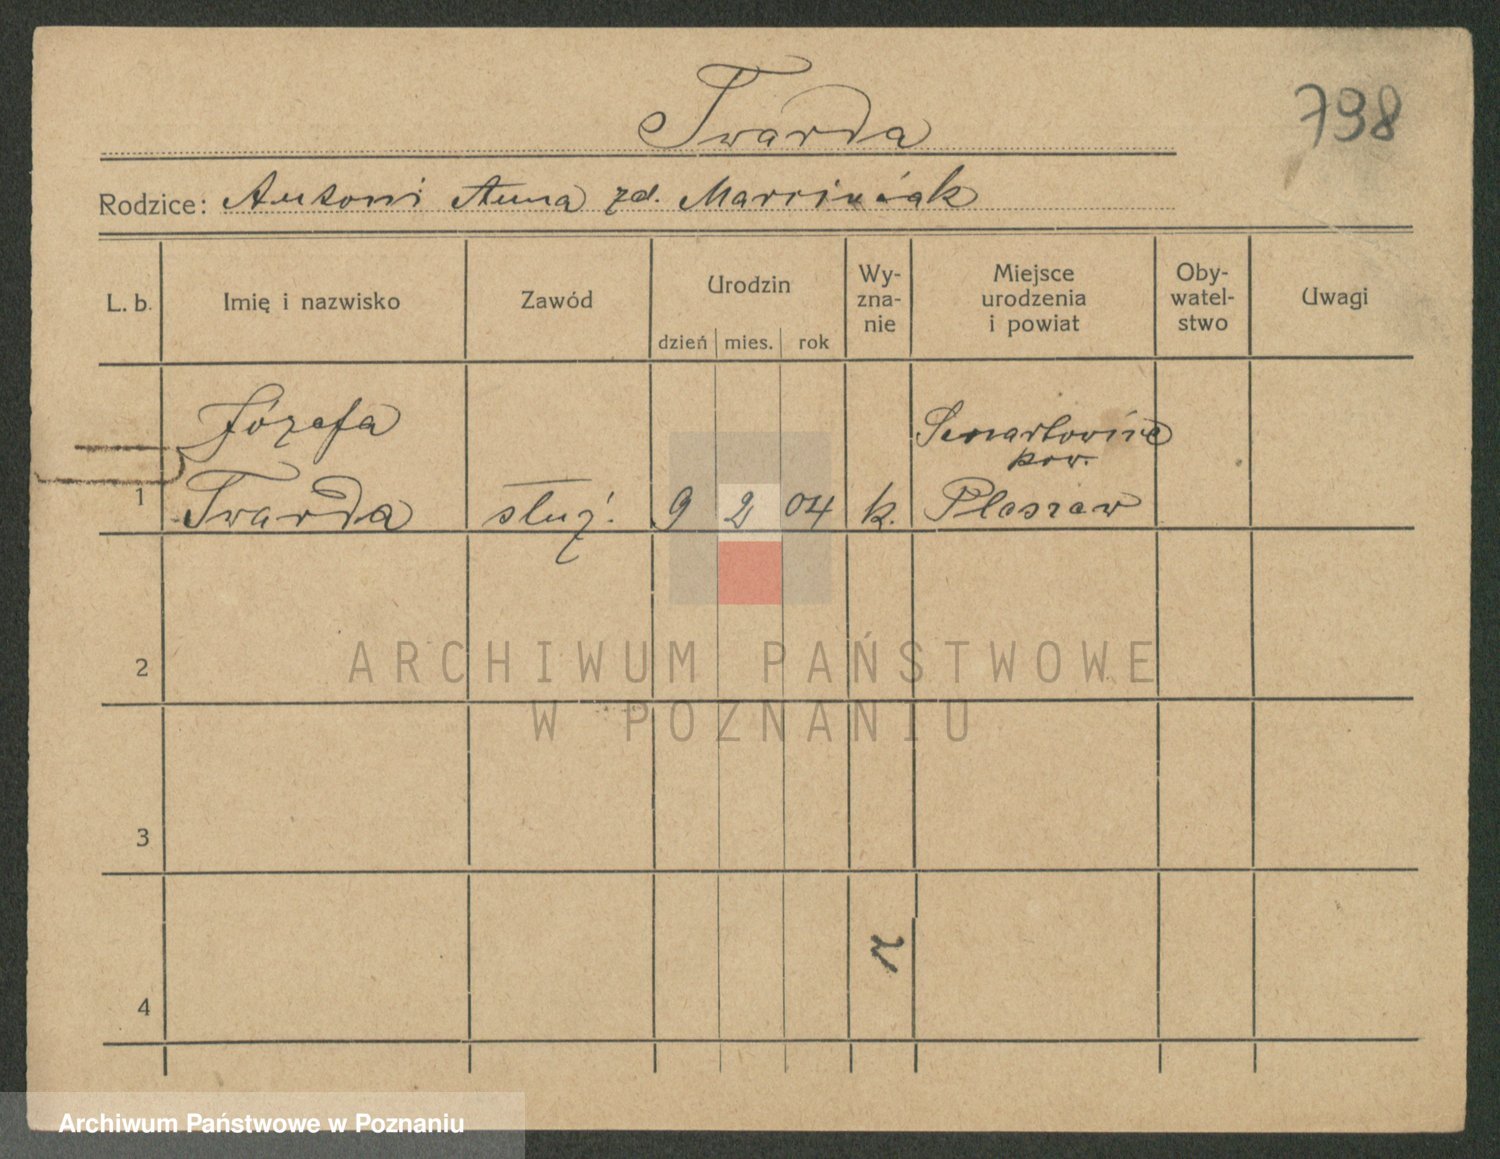 Twarda
798
Rodzice: Antoni Anna zd. Marciniak
L. b. Imię i nazwisko Zawód Urodzin dzień mies. rok Wy-zna-nie Miejsce urodzenia i powiat Oby-watel-stwo Uwagi
Józefa
pow.
1 Twarda służ. 9 2 04 k. Pleszew
2
ARCHIWUM PAŃSTWOWE
W POZNANIU
3
4
Archiwum Państwowe w Poznaniu